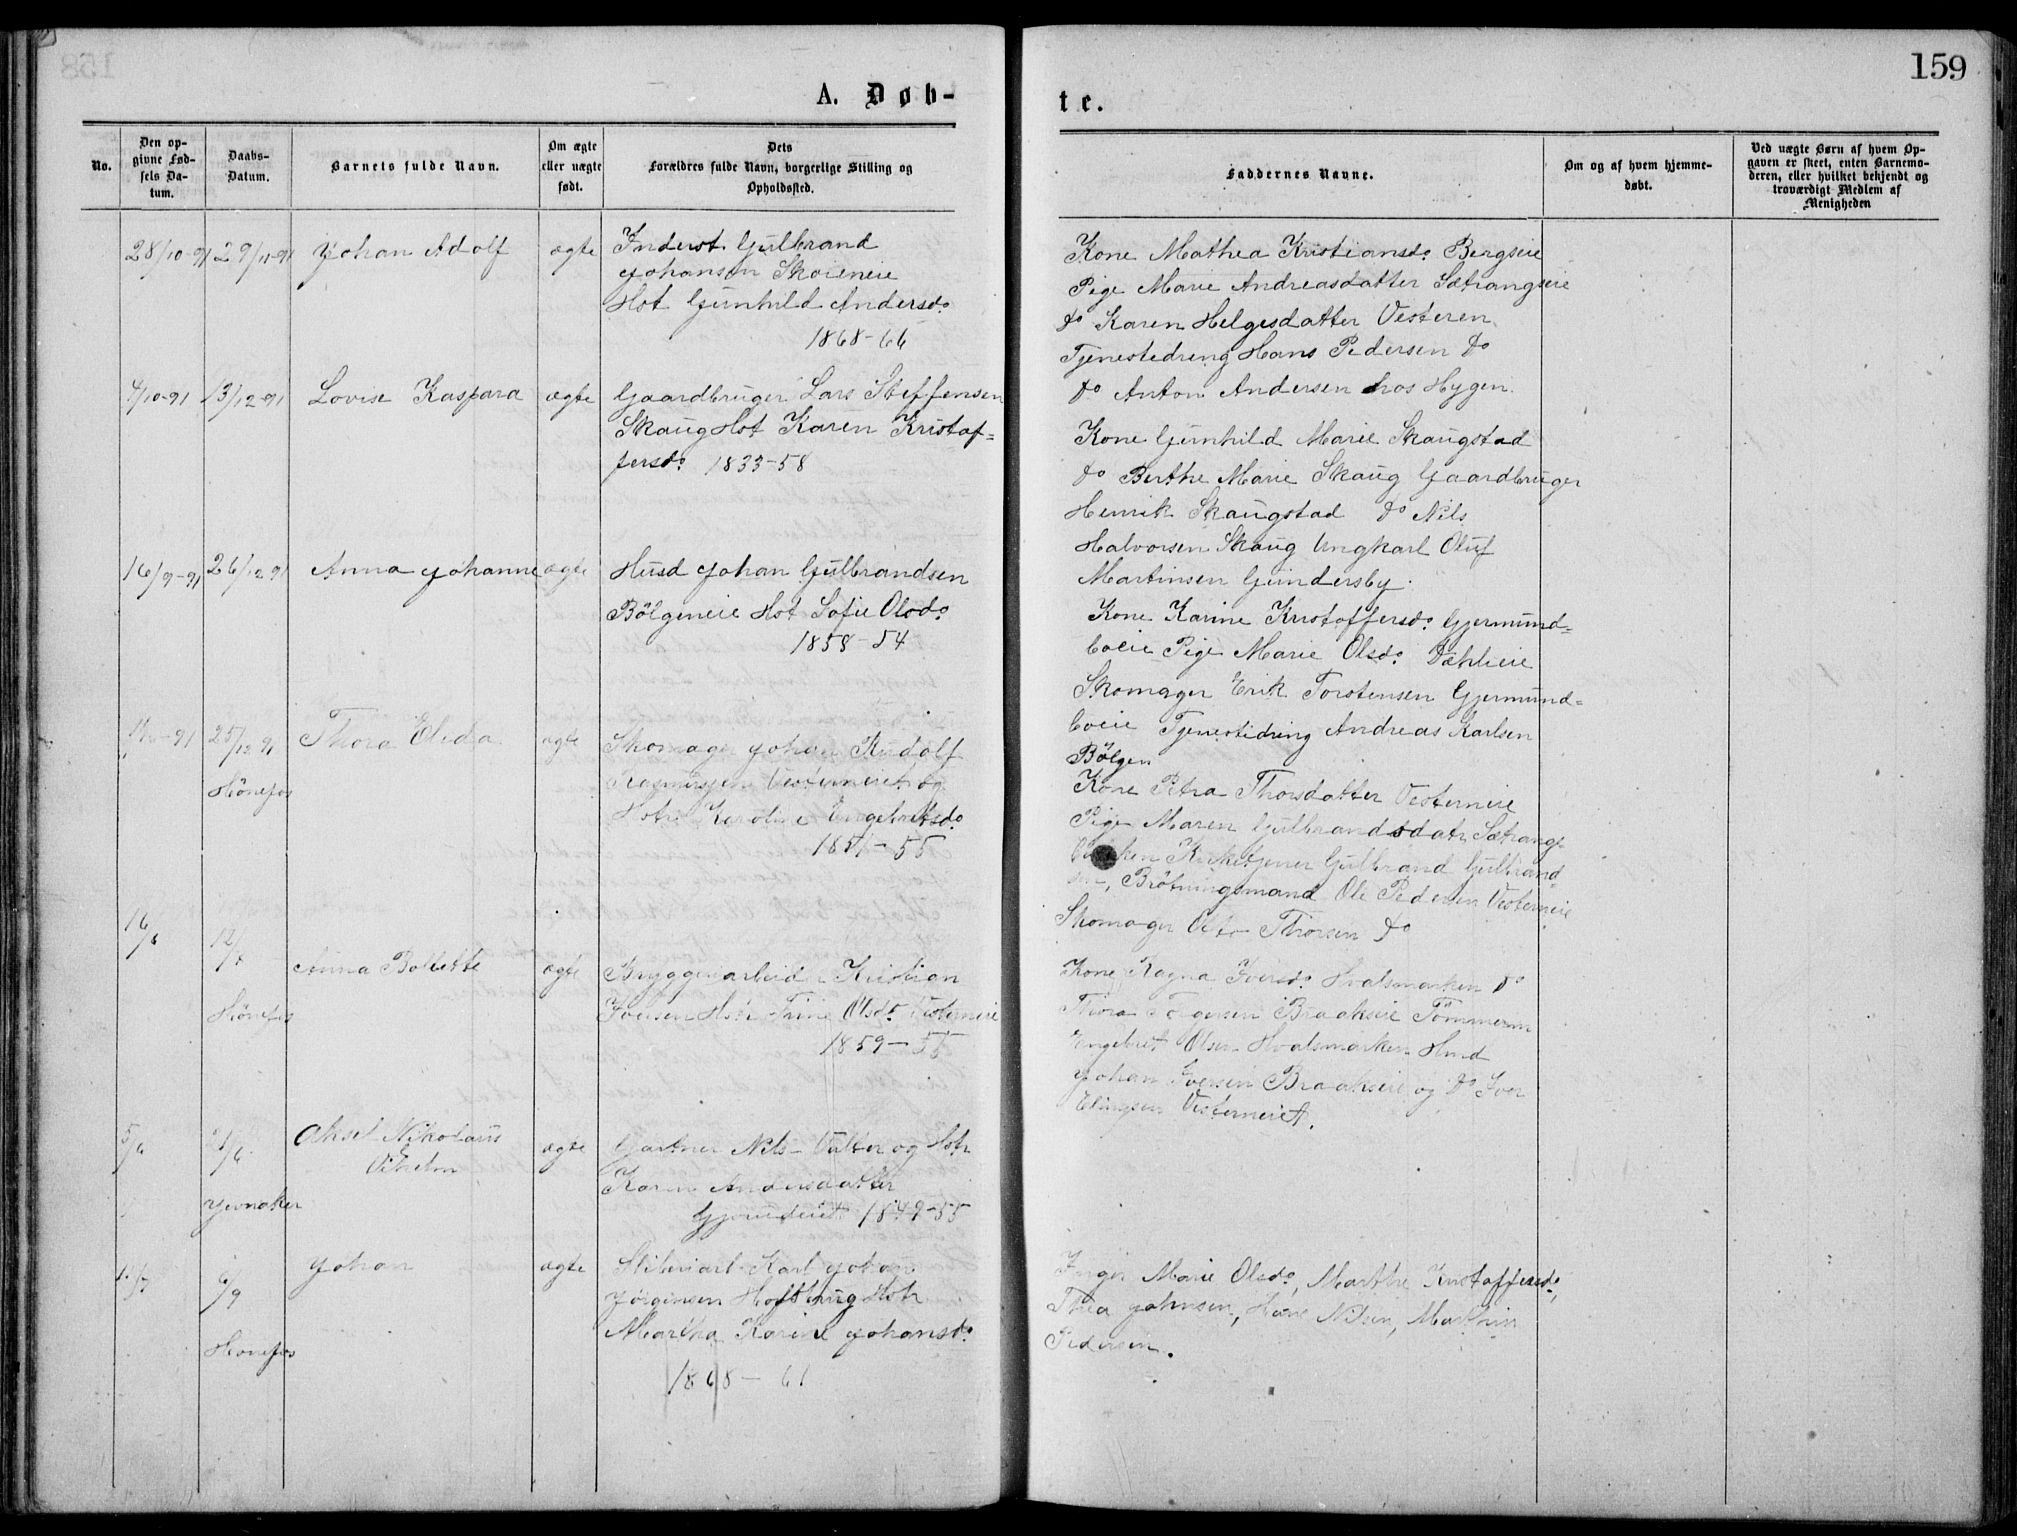 159
A. Døb-
te.
No.
Den op-
givne Fød-
sels Da-
tum.
Daabs-
Datum.
Barnets fulde Navn.
Om ægte
eller uægte
født.
Dets
Forældres fulde Navn, borgerlige Stilling og
Opholdssted.
Faddernes Navne.
Om og af hvem hjemme-
døbt.
Ved uægte Børn af hvem Op-
gaven er skeet, enten Barnemo-
deren, eller hvilket bekjendt og
troværdigt Medlem af
Menigheden
28/10-91 29/11-91 Johan Adolf ægte Inderst Gulbrand
Johansen Skoieneie
Hst Gunhild Andersd.
1868-66
Kone Mathea Kristiansd. Bergseie
Pige Marie Andreasdatter Sætrangseie
do Karen Helgesdatter Vesteren
Tjenestedreng Hans Pedersen do
do Anton Andersen hos Hygen.
4/10-91 13/12-91 Lovise Kaspara ægte Gaardbruger Lars Steffensen
Skaug Hst Karen Kristof-
fersd. 1833-58
Kone Gunhild Marie Skaugstad
do Berthe Marie Skaug Gaardbruger
Henrik Skaugstad do Nils
Halvorsen Skaug Ungkarl Oluf
Martinsen Gundersby.
16/9-91 26/12 91 Anna Johanne ægte Husd Johan Gulbrandsen
Bölgeneie Hst Sofie Olsd.
1858-54
Kone Karine Kristoffersd. Gjermund-
boeie Pige Marie Olsd. Dæhlieie
Skomager Erik Torstensen Gjermund-
boeie Tjenestedreng Andreas Karlsen
Bölgen
25/12 91 Thora Elida ægte Skomager Johan Rudolf
Hönefos
Rasmussen Vesterneiet og
Hstr Karoline Engebretsd.
1851-55
Kone Petra Thorsdatter Vesterneie
Pige Maren Gulbrandsdatr Sætrangs
Kirketjener Gulbrand Gulbrand-
sen, Brötningsmand Ole Pedersen Vesterneie
Skomager Otto Thorsen do
16/6 Anna Bolette ægte Bryggeriarbeid. Kristian
Hönefos
Iversen Hstr Trine Olsd. Vesterneie
1859-55
Kone Ragna Iversd. Hvalsmarken do
Thora Braakseie Tömmerm
Engebret Olsen Hvalsmarken Husd
Johan Iversen Braakseie og do Iver
Elingsen Vesterneiet.
5/6 Aksel Nikolaus ægte Gartner Nils Vatter og Hstr
Vilhelm
Karen Andersdatter
Jevnaker
1849-55
Johan ægte Sliberiarb Karl Johan
6/9
Jörgensen Hofsbrug Hstr
Hönefos
Martha Karine Johansd.
1868-61
Inger Marie Olsd., Marthe Kristoffersd.,
Thea Johnsen, Hans Nilsen, Martin
Pedersen.